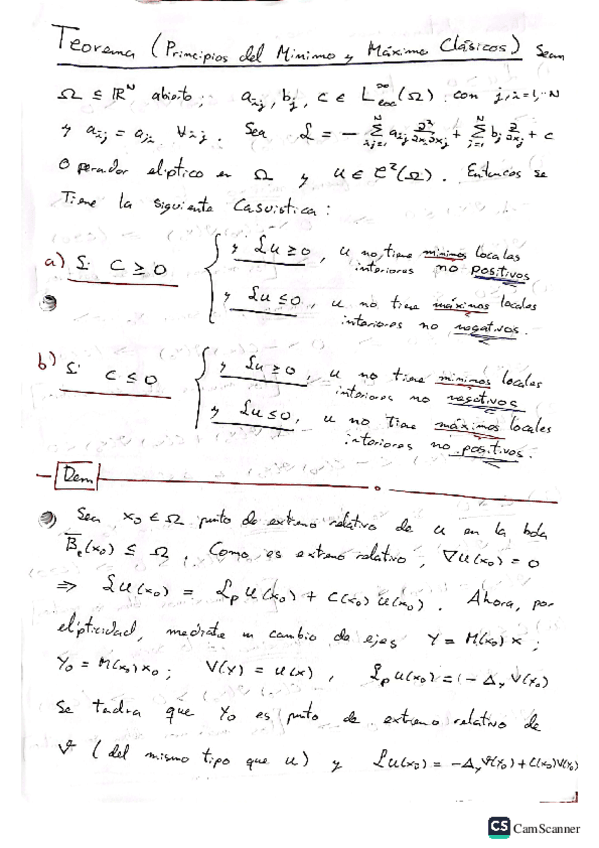 Teorema (Principios del Mínimo y Máximo Clásicos) Sean
Ω ⊆ ℝᴺ abierto; aᵢⱼ, bⱼ, c ∈ L^∞_loc(Ω) con j,i=1,..N
y aᵢⱼ = aⱼᵢ ∀i,j. Sea ℒ = - Σ_{i,j=1}^N aᵢⱼ ∂²/∂xᵢ∂xⱼ + Σ_{j=1}^N bⱼ ∂/∂xⱼ + c
Operador elíptico en Ω y u ∈ C²(Ω). Entonces se
Tiene la siguiente Casuística:
a) Si C ≥ 0 { y ℒu ≥ 0, u no tiene mínimos locales
interiores no positivos
y ℒu ≤ 0, u no tiene máximos locales
interiores no negativos.
b) Si C ≤ 0 { y ℒu ≥ 0, u no tiene mínimos locales
interiores no negativos
y ℒu ≤ 0, u no tiene máximos locales
interiores no positivos.
Dem
Sea x₀ ∈ Ω punto de extremo relativo de u en la bola
B̅(x₀) ⊆ Ω. Como es extremo relativo, ∇u(x₀) = 0
⇒ ℒu(x₀) = ℒₚu(x₀) + C(x₀)u(x₀). Ahora, por
elipticidad, mediante un cambio de ejes Y = M(x₀)x;
Y₀ = M(x₀)x₀; V(Y) = u(x), ℒₚu(x₀) = (-Δ_y V(Y₀)
Se tendrá que Y₀ es punto de extremo relativo de
v (del mismo tipo que u) y ℒu(x₀) = -Δ_y V(Y₀) + C(x₀)V(Y₀)
CS CamScanner